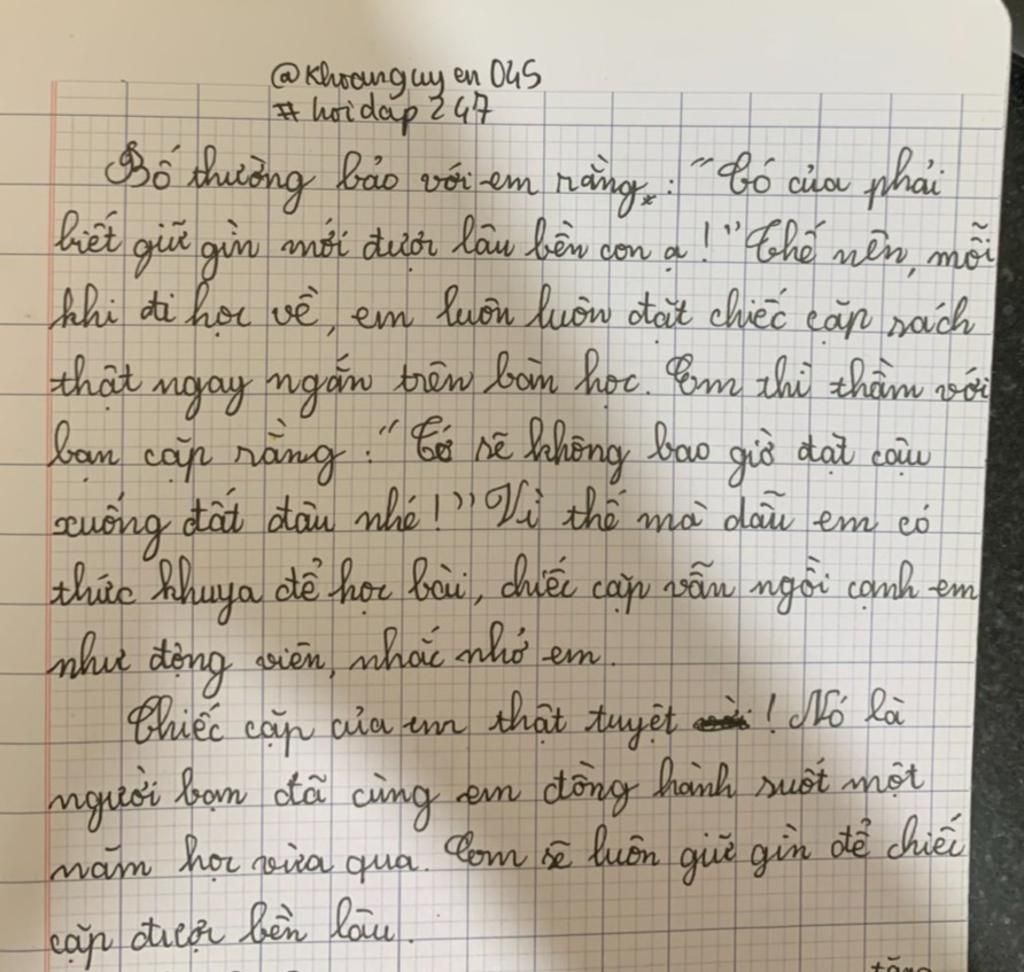 @Khoanguyen045
# hoidap247
Bố thường bảo với em rằng : "Có của phải
biết giữ gìn mới được lâu bền con ạ!" Thế nên, mỗi
khi đi học về, em luôn luôn đặt chiếc cặp sách
thật ngay ngắn trên bàn học. Em thì thầm với
bạn cặp rằng : "Tớ sẽ không bao giờ đặt cậu
xuống đất đâu nhé!" Vì thế mà dẫu em có
thức khuya để học bài, chiếc cặp vẫn ngồi cạnh em
như động viên, nhắc nhở em.
Chiếc cặp của em thật tuyệt ! Nó là
người bạn đã cùng em đồng hành suốt một
năm học vừa qua. Em sẽ luôn giữ gìn để chiếc
cặp được bền lâu.